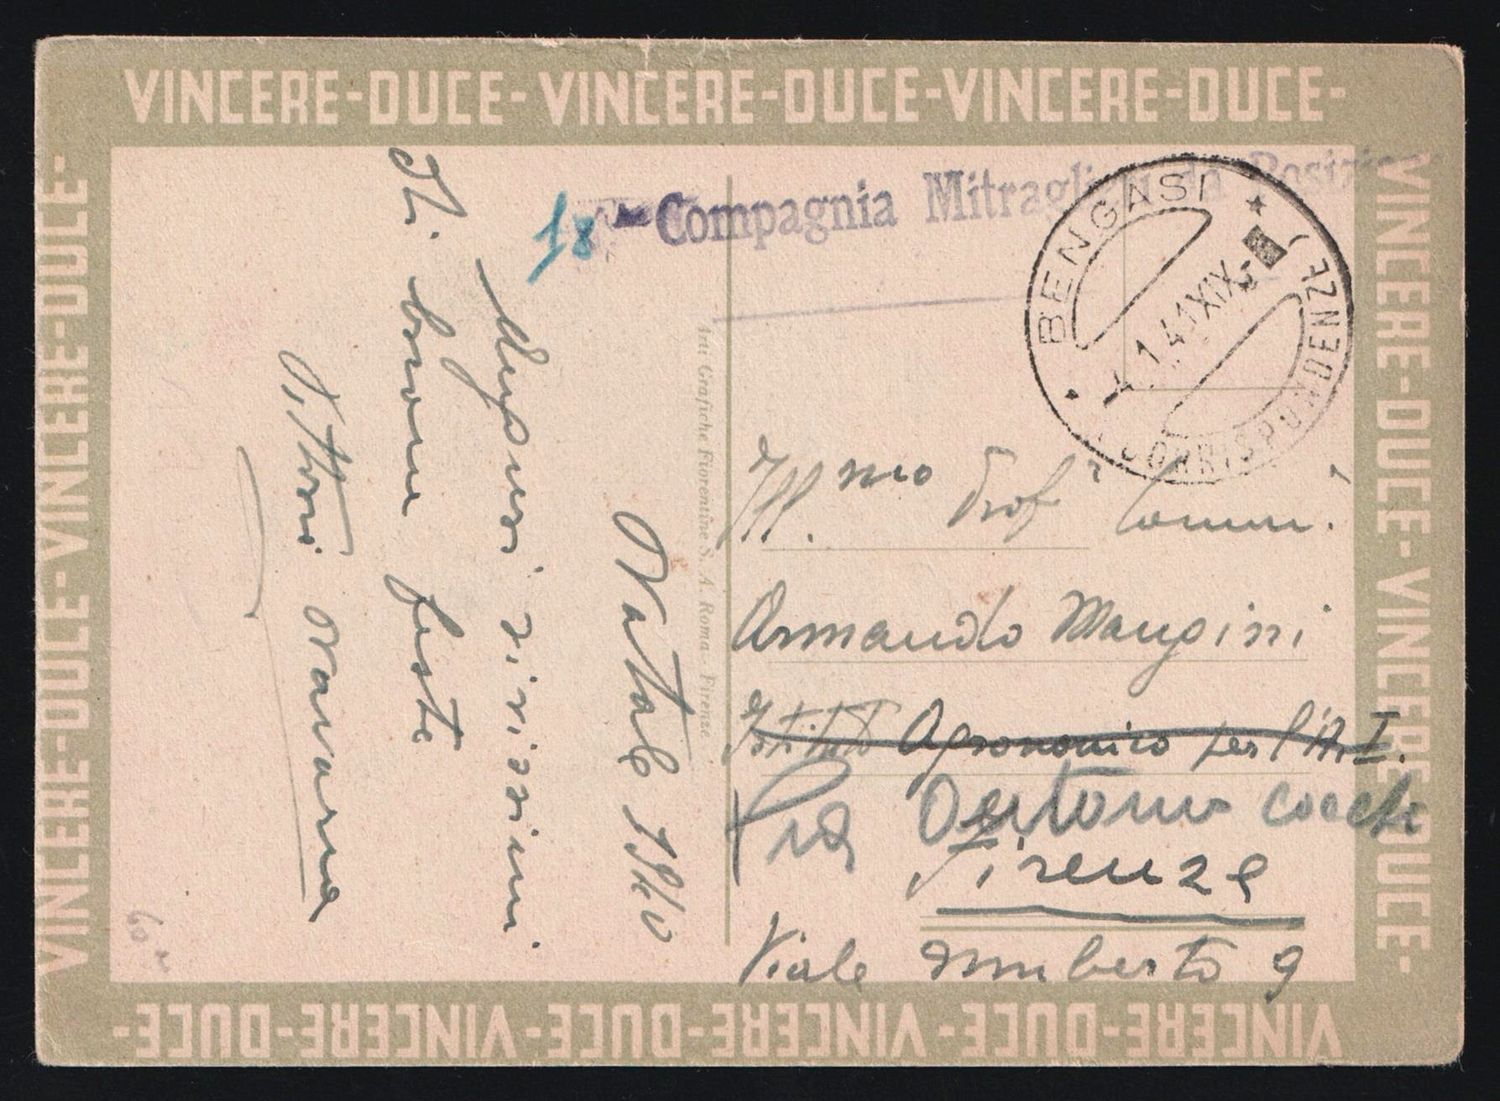 VINCERE-DUCE-VINCERE-DUCE-VINCERE-DUCE-
VINCERE-DUCE-VINCERE-DUCE-
VINCERE-DUCE-VINCERE-DUCE-VINCERE-DUCE-
VINCERE-DUCE-VINCERE-DUCE-
18 Compagnia Mitraglieri da Posizione
BENGASI
1.41XIX.5
CORRISPONDENZE
Arti Grafiche Fiorentine S. A. Roma - Firenze
Natale 1940
Auguri vivissimi
di buone feste
Navarra
Ill.mo Prof. Comm.
Armando Maugini
Istituto Agronomico per l'A I.
Via Antonio Cocchi
Firenze
Viale Umberto 9
60